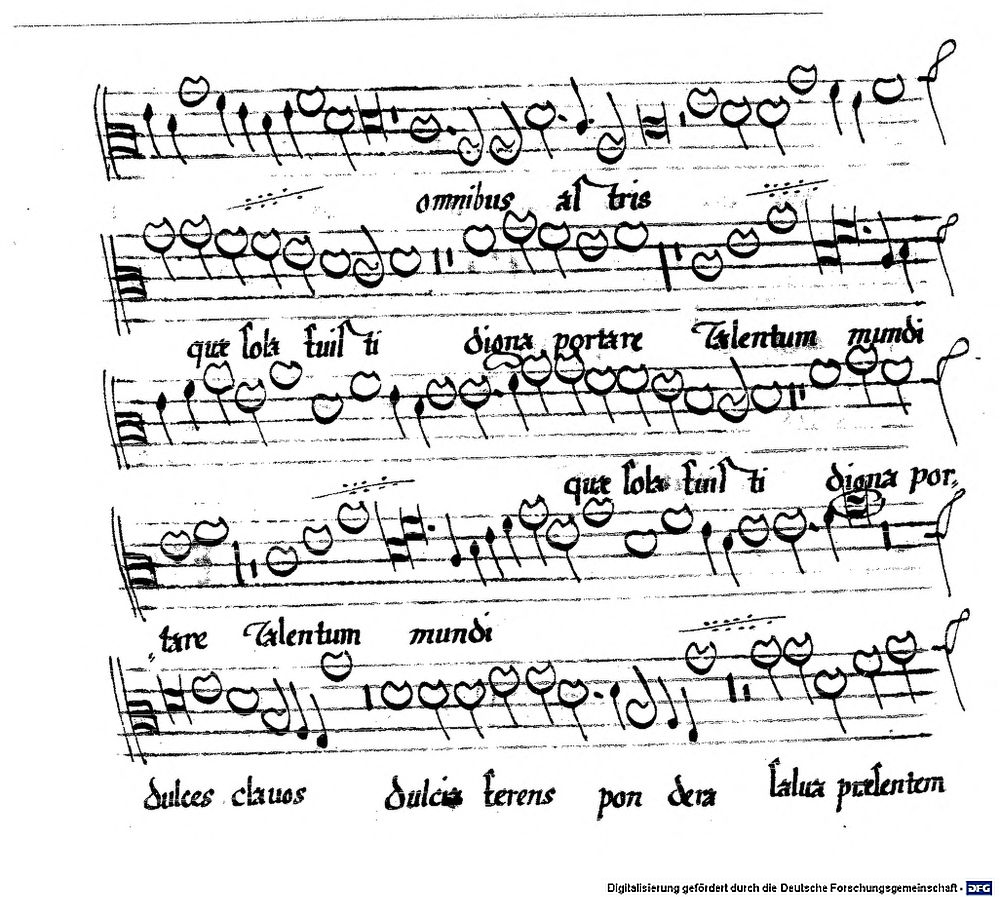 omnibus aſ tris
quæ ſola fuiſ ti digna portare Talentum mundi
quæ ſola fuiſ ti digna por„
„tare Talentum mundi
dulces clauos dulcia ferens pon dera ſalua præſentem
Digitalisierung gefördert durch die Deutsche Forschungsgemeinschaft - DFG